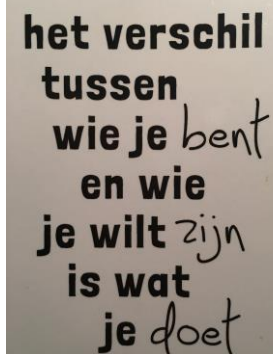 het verschil
tussen
wie je bent
en wie
je wilt zijn
is wat
je doet